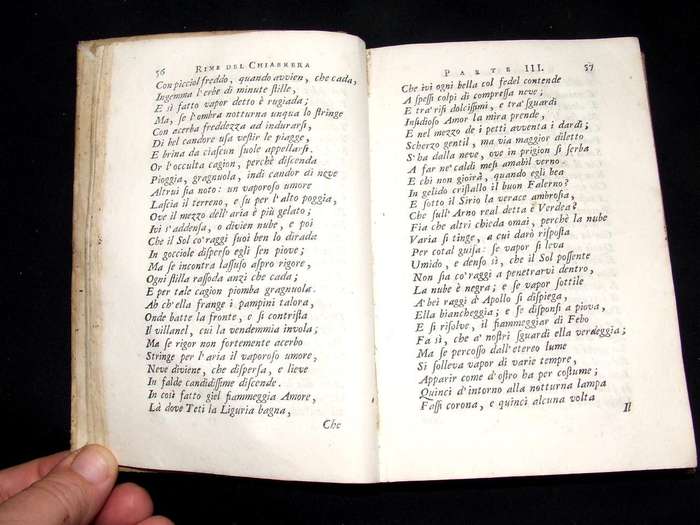 56 RIME DEL CHIABRERA
Con picciol freddo, quando avvien, che cada,
Ingemma l'erbe di minute stille,
E sì fatto vapor detto è rugiada;
Ma, se l'ombra notturna unqua lo stringe
Con acerba freddezza ad indurarsi,
Di bel candore usa vestir le piagge,
E brina da ciascun suole appellarsi.
Or l'occulta cagion, perchè discenda
Pioggia, gragnuola, indi candor di neve
Altrui sia noto: un vaporoso umore
Lascia il terreno, e su per l'alto poggia,
Ove il mezzo dell'aria è più gelato;
Ivi s'addensa, o divien nube, e poi
Che il Sol co'raggi suoi ben lo dirada
In gocciole disperso egli sen piove;
Ma se incontra lassuso aspro rigore,
Ogni stilla rassoda anzi che cada;
E per tale cagion piomba gragnuola.
Ah ch'ella frange i pampini talora,
Onde batte la fronte, e si contrista
Il villanel, cui la vendemmia invola;
Ma se rigor non fortemente acerbo
Stringe per l'aria il vaporoso umore,
Neve diviene, che dispersa, e lieve
In falde candidissime discende.
In così fatto giel fiammeggia Amore,
Là dove Teti la Liguria bagna,
Che
PARTE III. 57
Che ivi ogni bella col fedel contende
A spessi colpi di compressa neve;
E tra'risi dolcissimi, e tra'sguardi
Insidioso Amor la mira prende,
E nel mezzo de i petti avventa i dardi;
Scherzo gentil, ma via maggior diletto
S'ha dalla neve, ove in prigion si serba
A far ne'caldi mesi amabil verno.
E chi non gioirà, quando egli bea
In gelido cristallo il buon Falerno?
E sotto il Sirio la verace ambrosia,
Che sull'Arno real detta è Verdea?
Fia che altri chieda omai, perchè la nube
Varia si tinge, a cui darò risposta
Per cotal guisa: se vapor si leva
Umido, e denso sì, che il Sol possente
Non sia co'raggi a penetrarvi dentro,
La nube è negra; e se vapor sottile
A'bei raggi d'Apollo si dispiega,
Ella biancheggia; e se disponsi a piova,
E si risolve, il fiammeggiar di Febo
Fa sì, che a'nostri sguardi ella verdeggia;
Ma se percosso dall'etereo lume
Si solleva vapor di varie tempre,
Apparir come d'ostro ha per costume;
Quinci d'intorno alla notturna lampa
Fassi corona, e quinci alcuna volta
Il